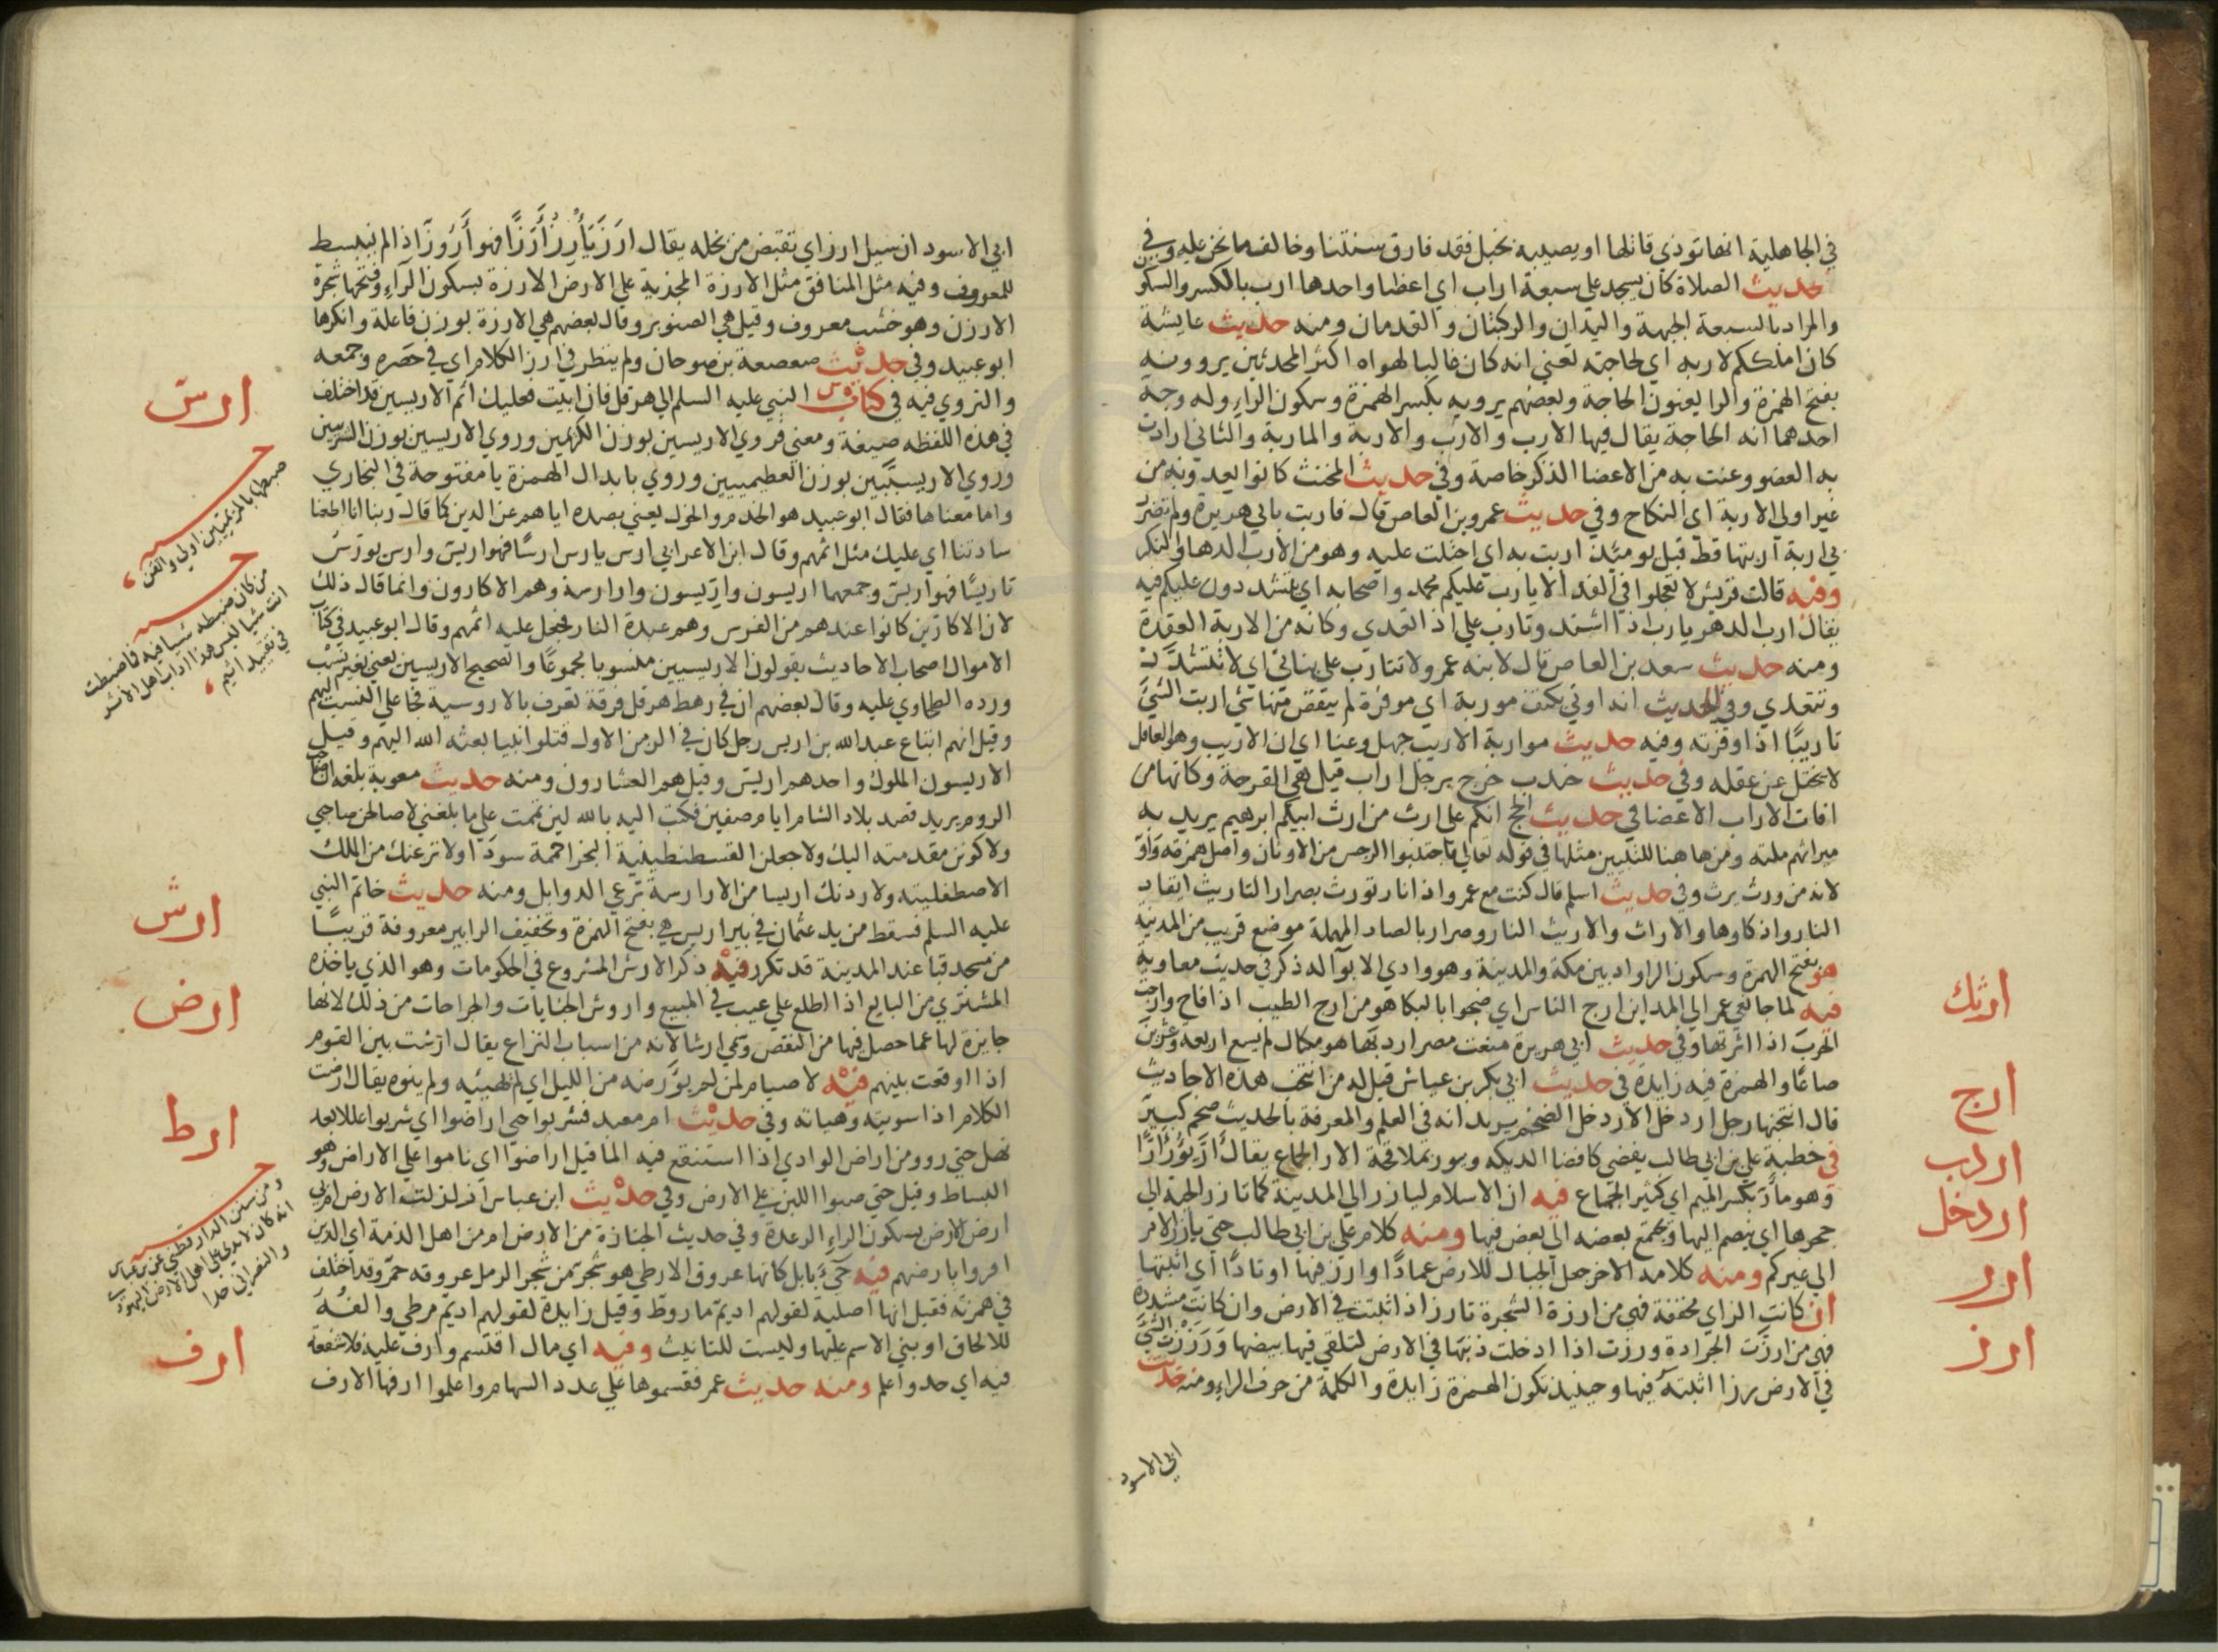 في الجاهلية انها تؤذي قاتلها او يصيبه بخبل فقد فارق سنتنا وخالف ما نحن عليه وفي
حديث الصلاة كان يسجد على سبعة اراب اي اعضا واحدها ارب بالكسر والسكون
والمراد بالسبعة الجبهة واليدان والركبتان والقدمان ومنه حديث عايشة
كان املككم لاربه اي لحاجته تعني انه كان غالبا لهواه اكثر المحدثين يروونه
بفتح الهمزة والرا يعنون الحاجة وبعضهم يرويه بكسر الهمزة وسكون الراء وله وجه
احدهما انه الحاجة يقال فيها الارب والارب والاربة والماربة والثاني ارادت
به العضو وعنت به من الاعضا الذكر خاصة وفي حديث المخنث كانوا يعدونه من
غير اولي الاربة اي النكاح وفي حديث عمرو بن العاص قال فاربت بابي هريرة ولم تضرر
بي اربة اربتها قط قبل يومئذ اربت به اي احتلت عليه وهو من الارب الدهاء والنكر
وفيه قالت قريش لا تعجلوا في الفدا لا يارب عليكم محمد واصحابه اي يتشددون عليكم فيه
يقال ارب الدهر يارب اذا اشتد وتارب علي اذا تعدي وكانه من الاربة العقدة
ومنه حديث سعد بن العاص قال لابنه عمرو لا تتارب على بناتي اي لا تتشدد
وتتعدي وفي الحديث انه اوتي بكتف موربة اي موفرة لم ينقص منها شي اربت الشي
تاريبا اذا وفرته وفيه حديث مواربة الاريب جهل وعنا اي ان الاريب وهو العاقل
لا يختل عن عقله وفي حديث جندب خرج برجل اراب قيل هي القرحة وكانها من
افات الاراب الاعضا في حديث الحج انكم على ارث من ارث ابيكم ابرهيم يريد به
ميراثهم ملته ومن هاهنا للتبيين مثلها في قوله تعالي فاجتنبوا الرجس من الاوثان واصل همزته واو
لانه من ورث يرث وفي حديث اسلم قال كنت مع عمر واذا نار تورث بصرار التاريث ايقاد
النار واذكاوها والاراث والاريث النار وصرار بالصاد المهملة موضع قريب من المدينة
هو بفتح الهمزة وسكون الرا واد بين مكة والمدينة وهو وادي الابوا له ذكر في حديث معاوية
فيه لما جا نعي عمر الي المداين ارج الناس اي ضجوا بالبكا هو من ارج الطيب اذا فاح وارجت
الحرب اذا اثرتها وفي حديث ابي هريرة منعت مصر اردبها هو مكال لهم يسع اربعة وعشرين
صاعا والهمزة فيه زايدة في حديث ابي بكر بن عياش قيل له من انتخب هذه الاحاديث
قال انتخبها رجل اردخل الاردخل الضخم يريد انه في العلم والمعرفة بالحديث ضخم كبير
في خطبة علي بن ابي طالب يفضي كافضا الديكه ويور بملاقحة الار الجماع يقال ار يؤر ارا
وهو مأر بكسر الميم اي كثير الجماع فيه ان الاسلام ليارز الي المدينة كما تارز الحية الي
جحرها اي ينضم اليها ويجتمع بعضه الي بعض فيها ومنه كلام علي بن ابي طالب حتي يارز الامر
الي غيركم ومنه كلامه الاخر جعل الجبال للارض عمادا وارز فيها اوتادا اي اثبتها
ان كانت الزاي مخففة فهي من ارزة الشجرة تارز اذا اثبتت في الارض وان كانت مشددة
فهي من ارزت الجرادة ورزت اذا ادخلت ذنبها في الارض لتلقي فيها بيضها ورززت الشي
في الارض رزا اثبته فيها وحينيذ تكون الهمزة زايدة والكلمة من حرف الراء ومنه حديث
ابي الاسود
ارثك
ارج
اردب
اردخل
ارر
ارز
ابي الاسود ان سيل ارز اي تقبض من بخله يقال ارز يأرز أرزا فهو أروز اذا لم ينبسط
للمعروف وفيه مثل المنافق مثل الارزة المجذية علي الارض الارزة بسكون الراء وفتحها شجرة
الارزن وهو خشب معروف وقيل هي الصنوبر وقال بعضهم هي الارزة بوزن فاعلة وانكرها
ابو عبيد وفي حديث صعصعة بن صوحان ولم ينظر في ارز الكلام اي في حصره وجمعه
والتروي فيه في كتاب النبي عليه السلم الي هرقل فان ابيت فعليك اثم الاريسين قد اختلف
في هذه اللفظه صيغة ومعني فروي الاريسين بوزن الكريمين وروي الاريسين بوزن الشريبين
وروي الاريسيين بوزن العظيميين وروي بابدال الهمزة يا مفتوحة في البخاري
واما معناها فقال ابو عبيد هو الخدم والخول يعني بصده اياهم عن الدين كما قال ربنا انا اطعنا
سادتنا اي عليك مثل اثمهم وقال ابن الاعرابي ارس يارس ارسا فهو اريس وارس يورس
تاريسا فهو اريس وجمعها اريسون واريسون وارارسة وهم الاكارون وانما قال ذلك
لان الاكارين كانوا عندهم من الفرس وهم عبدة النار فجعل عليه اثمهم وقال ابو عبيد في كتاب
الاموال اصحاب الاحاديث يقولون الاريسيين منسوبا مجموعا والصحيح الاريسين يعني بغير نسب
ورده الطحاوي عليه وقال بعضهم ان في رهط هرقل فرقة تعرف بالاروسية فجا علي النسب اليهم
وقيل انهم اتباع عبد الله بن اريس رجل كان في الزمن الاول قتلوا نبيا بعثه الله اليهم وقيل
الاريسون الملوك واحدهم اريس وقيل هم العشارون ومنه حديث معوية بلغه ان صاحب
الروم يريد قصد بلاد الشام ايام صفين فكتب اليه بالله لين تممت علي ما بلغني لاصالحن صاحبي
ولاكونن مقدمته اليك ولاجعلن القسطنطينية البخرا حمة سودا ولانزعنك من الملك
الاصطفلينة ولاردنك اريسا من الارارسة ترعي الدوابل ومنه حديث خاتم النبي
عليه السلم فسقط من يد عثمان في بير اريس هي بفتح الهمزة وتخفيف الرا بير معروفة قريبا
من مسجد قبا عند المدينة قد تكرر فيه ذكر الارش المشروع في الحكومات وهو الذي ياخذه
المشتري من البايع اذا اطلع علي عيب في المبيع واروش الجنايات والجراحات من ذلك لانها
جابرة لها عما حصل فيها من النقص وسمي ارشا لانه من اسباب النزاع يقال ارشت بين القوم
اذا اوقعت بينهم فيه لا صيام لمن لم يؤرضه من الليل اي لم يهييه ولم ينوه يقال ارضت
الكلام اذا سويته وهياته وفي حديث ام معبد فشربوا حتي اراضوا اي شربوا عللا بعد
نهل حتي رووا من اراض الوادي اذا استنقع فيه الما قيل اراضوا اي ناموا علي الاراض وهو
البساط وقيل حتي صبوا اللبن علي الارض وفي حديث ابن عباس ازلزلت الارض ام بي
ارض الارض بسكون الراء الرعدة وفي حديث الجنازة من الارض ام من اهل الذمة اي الذين
اقروا بارضهم فيه جيء بابل كانها عروق الارطي هو شجر من شجر الرمل عروقه حمر وقد اختلف
في همزته فقيل انها اصلية لقولهم اديم ماروط وقيل زايدة لقولهم اديم مرطي والفه
للالحاق او بني الاسم عليها وليست للتانيث وفيه اي مال اقتسم وارف عليه فلا شفعة
فيه اي حد واعلم ومنه حديث عمر فقسموها علي عدد السهام واعلموا ارفها الارف
ارس
ارش
ارض
ارط
ارف
من كان ضبطه شيا فيه فاضبطت
ومن سنن الدارقطني عن ابن عباس
انه كان لا يري علي اهل الارض اليهودي
والنصراني حدا